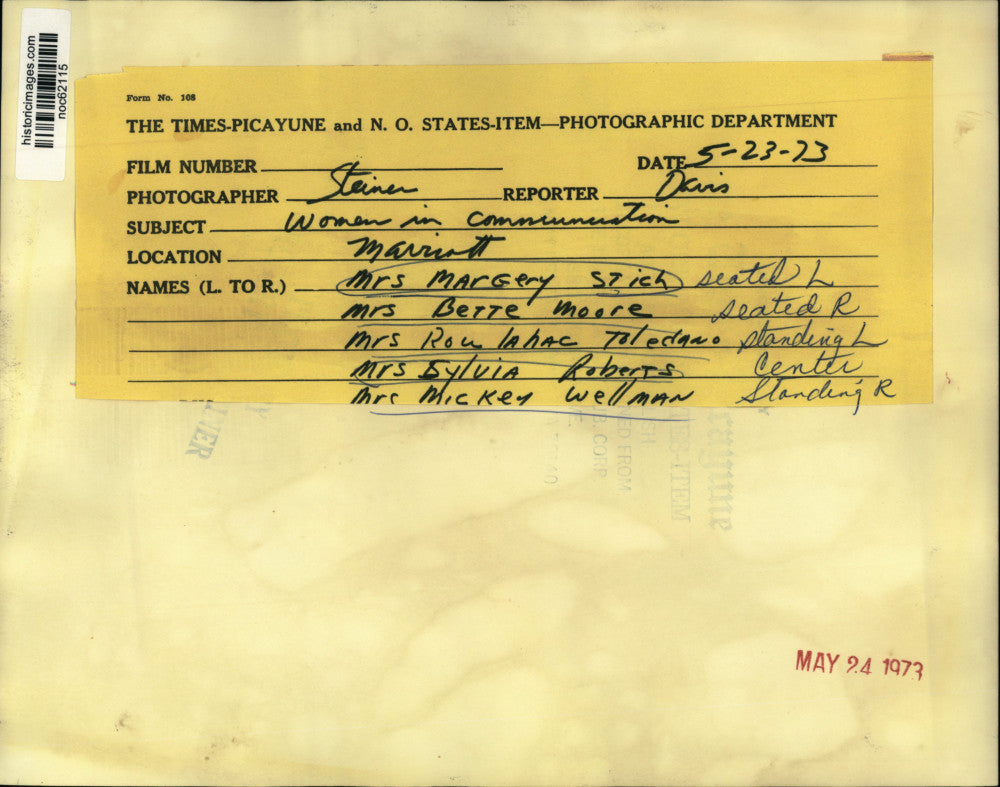 historicimages.com
noc62115
Form No. 108
THE TIMES-PICAYUNE and N. O. STATES-ITEM—PHOTOGRAPHIC DEPARTMENT
FILM NUMBER
DATE 5-23-73
PHOTOGRAPHER Steiner REPORTER Davis
SUBJECT Women in Communication
LOCATION Marriott
NAMES (L. TO R.) Mrs Margery Stich seated L
Mrs Bette Moore seated R
Mrs Rou lahac Toledano standing L
Mrs Sylvia Roberts Center
Mrs Mickey Wellman Standing R
ED FROM
CORP
ES-ITEM
MAY 24 1973